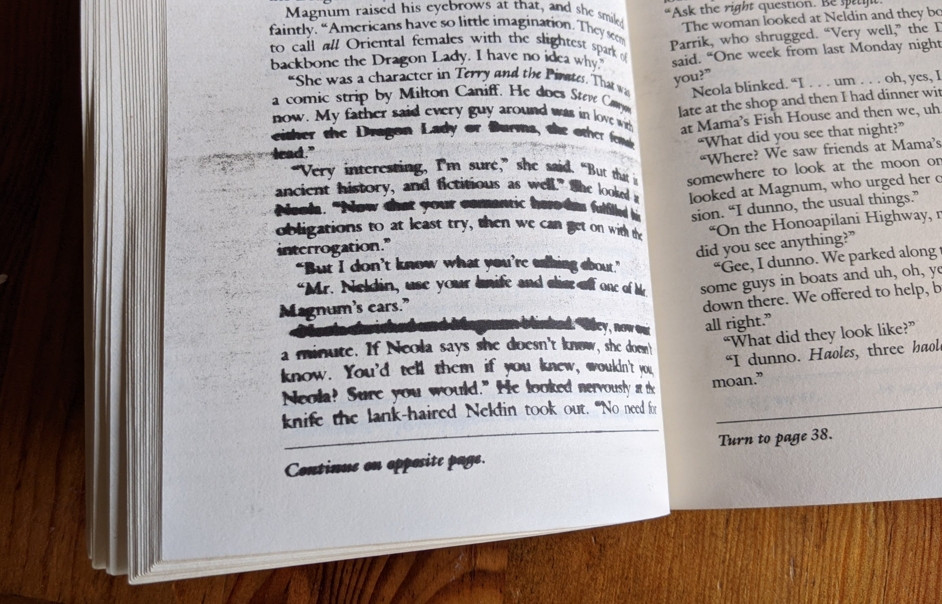 Magnum raised his eyebrows at that, and she smiled
faintly. “Americans have so little imagination. They seem
to call all Oriental females with the slightest spark of
backbone the Dragon Lady. I have no idea why.”
“She was a character in Terry and the Pirates. That was
a comic strip by Milton Caniff. He does Steve Canyon
now. My father said every guy around was in love with
either the Dragon Lady or Burma, the other female
lead.”
“Very interesting, I’m sure,” she said. “But that is
ancient history, and fictitious as well.” She looked at
Neola. “Now that your romantic hero has fulfilled his
obligations to at least try, then we can get on with the
interrogation.”
“But I don’t know what you’re talking about.”
“Mr. Neldin, use your knife and slice off one of Mr.
Magnum’s ears.”
Neola and Magnum blinked. “Hey, now wait
a minute. If Neola says she doesn’t know, she doesn’t
know. You’d tell them if you knew, wouldn’t you,
Neola? Sure you would.” He looked nervously at the
knife the lank-haired Neldin took out. “No need for
Continue on opposite page.
“Ask the right question. Be specific.
The woman looked at Neldin and they bo
Parrik, who shrugged. “Very well,” the D
said. “One week from last Monday night
you?”
Neola blinked. “I . . . um . . . oh, yes, I
late at the shop and then I had dinner wit
at Mama’s Fish House and then we, uh
“What did you see that night?”
“Where? We saw friends at Mama’s
somewhere to look at the moon on
looked at Magnum, who urged her o
sion. “I dunno, the usual things.”
“On the Honoapilani Highway, n
did you see anything?”
“Gee, I dunno. We parked along
some guys in boats and uh, oh, ye
down there. We offered to help, b
all right.”
“What did they look like?”
“I dunno. Haoles, three haole
moan.”
Turn to page 38.